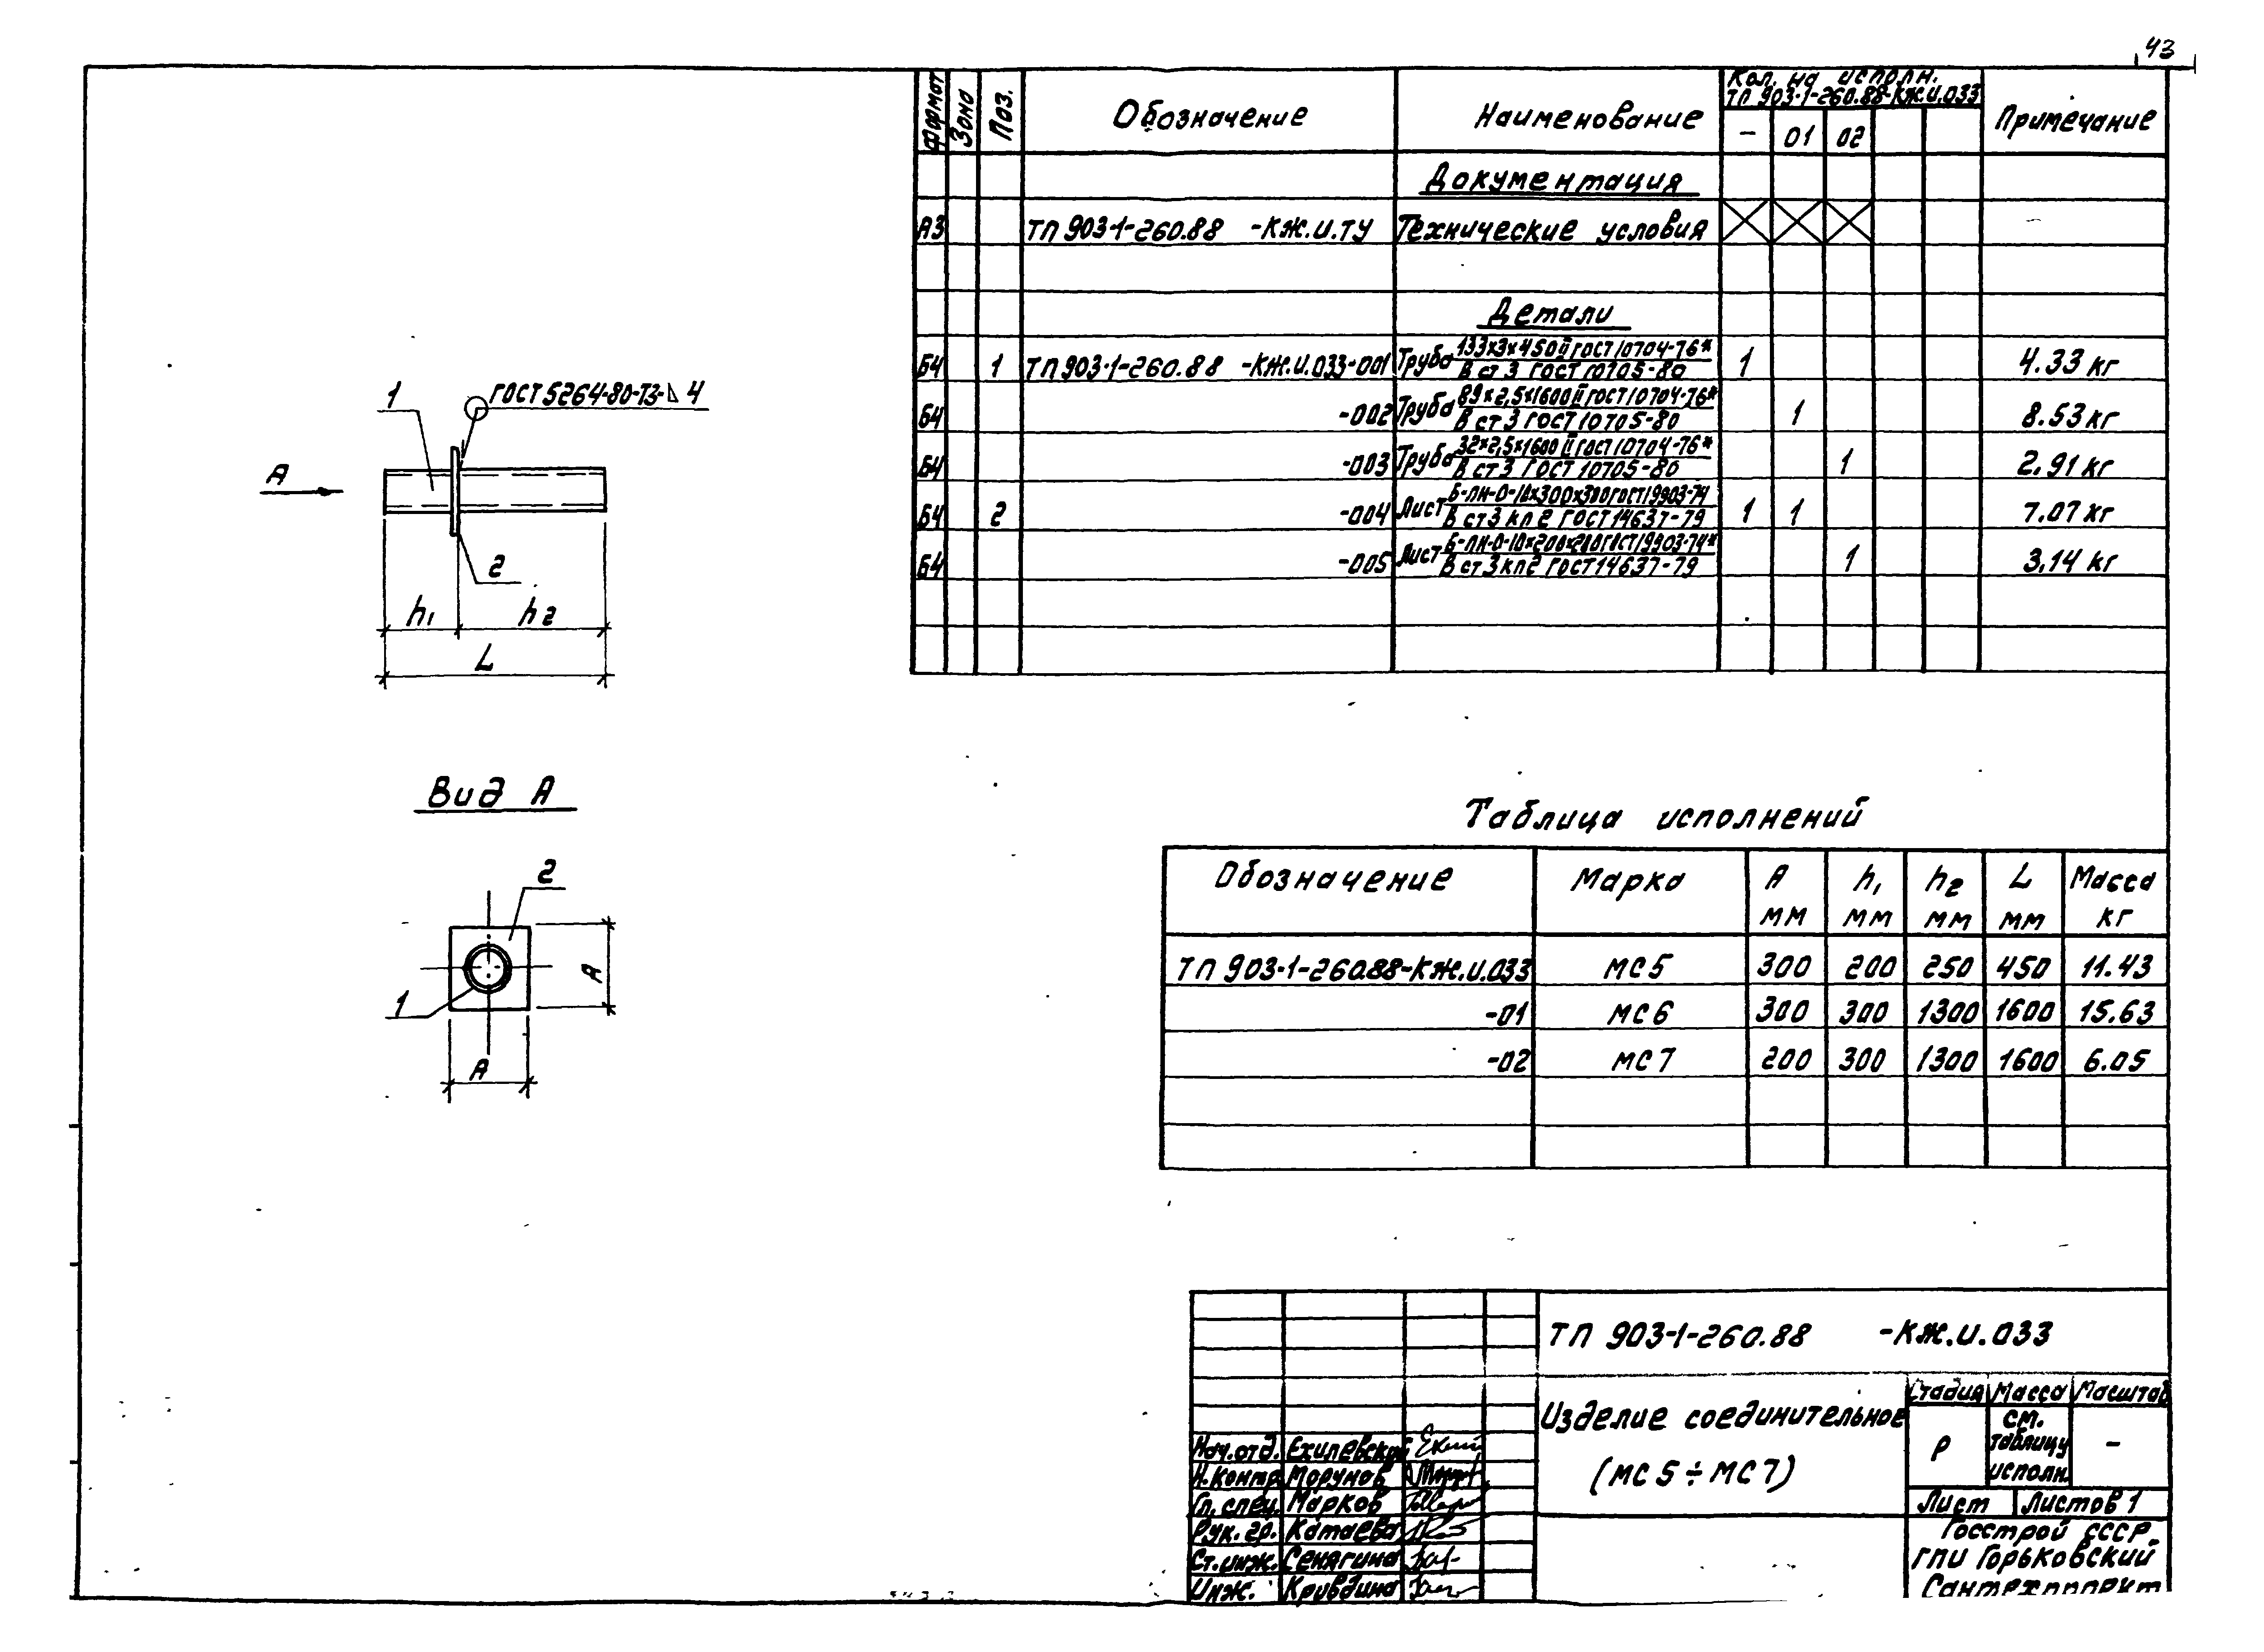 43
Формат Зона Поз. Обозначение Наименование Кол. на исполн. ТП 903-1-260.88-КЖ.И.033 Примечание
- 01 02
Документация
А3 ТП 903-1-260.88 -КЖ.И.ТУ Технические условия
Детали
Б4 1 ТП 903-1-260.88 -КЖ.И.033-001 Труба 133х3х450 II ГОСТ 10704-76* 1 4.33 кг
В ст 3 ГОСТ 10705-80
Б4 -002 Труба 89х2,5х1600 II ГОСТ 10704-76* 1 8.53 кг
В ст 3 ГОСТ 10705-80
Б4 -003 Труба 32х2,5х1600 II ГОСТ 10704-76* 1 2.91 кг
В ст 3 ГОСТ 10705-80
Б4 2 -004 Лист Б-ПН-О-10х300х300 ГОСТ 19903-74 1 1 7.07 кг
В ст 3 кп 2 ГОСТ 14637-79
Б4 -005 Лист Б-ПН-О-10х200х200 ГОСТ 19903-74* 1 3.14 кг
В ст 3 кп 2 ГОСТ 14637-79
1 ГОСТ 5264-80-Т3-⊿ 4
А
2
h₁ h₂
L
Вид А
2
А
1
А
Таблица исполнений
Обозначение Марка А мм h₁ мм h₂ мм L мм Масса кг
ТП 903-1-260.88-КЖ.И.033 МС 5 300 200 250 450 11.43
-01 МС 6 300 300 1300 1600 15.63
-02 МС 7 200 300 1300 1600 6.05
ТП 903-1-260.88 -КЖ.И.033
Изделие соединительное
(МС 5 ÷ МС 7)
Стадия Масса Масштаб
Р см. таблицу исполн. -
Лист Листов 1
Госстрой СССР
ГПИ Горьковский
Сантехпроект
Нач. отд. Ехилевский
Н. контр. Морунов
Гл. спец. Марков
Рук. гр. Катаева
Ст. инж. Сенягина
Инж. Кривдина